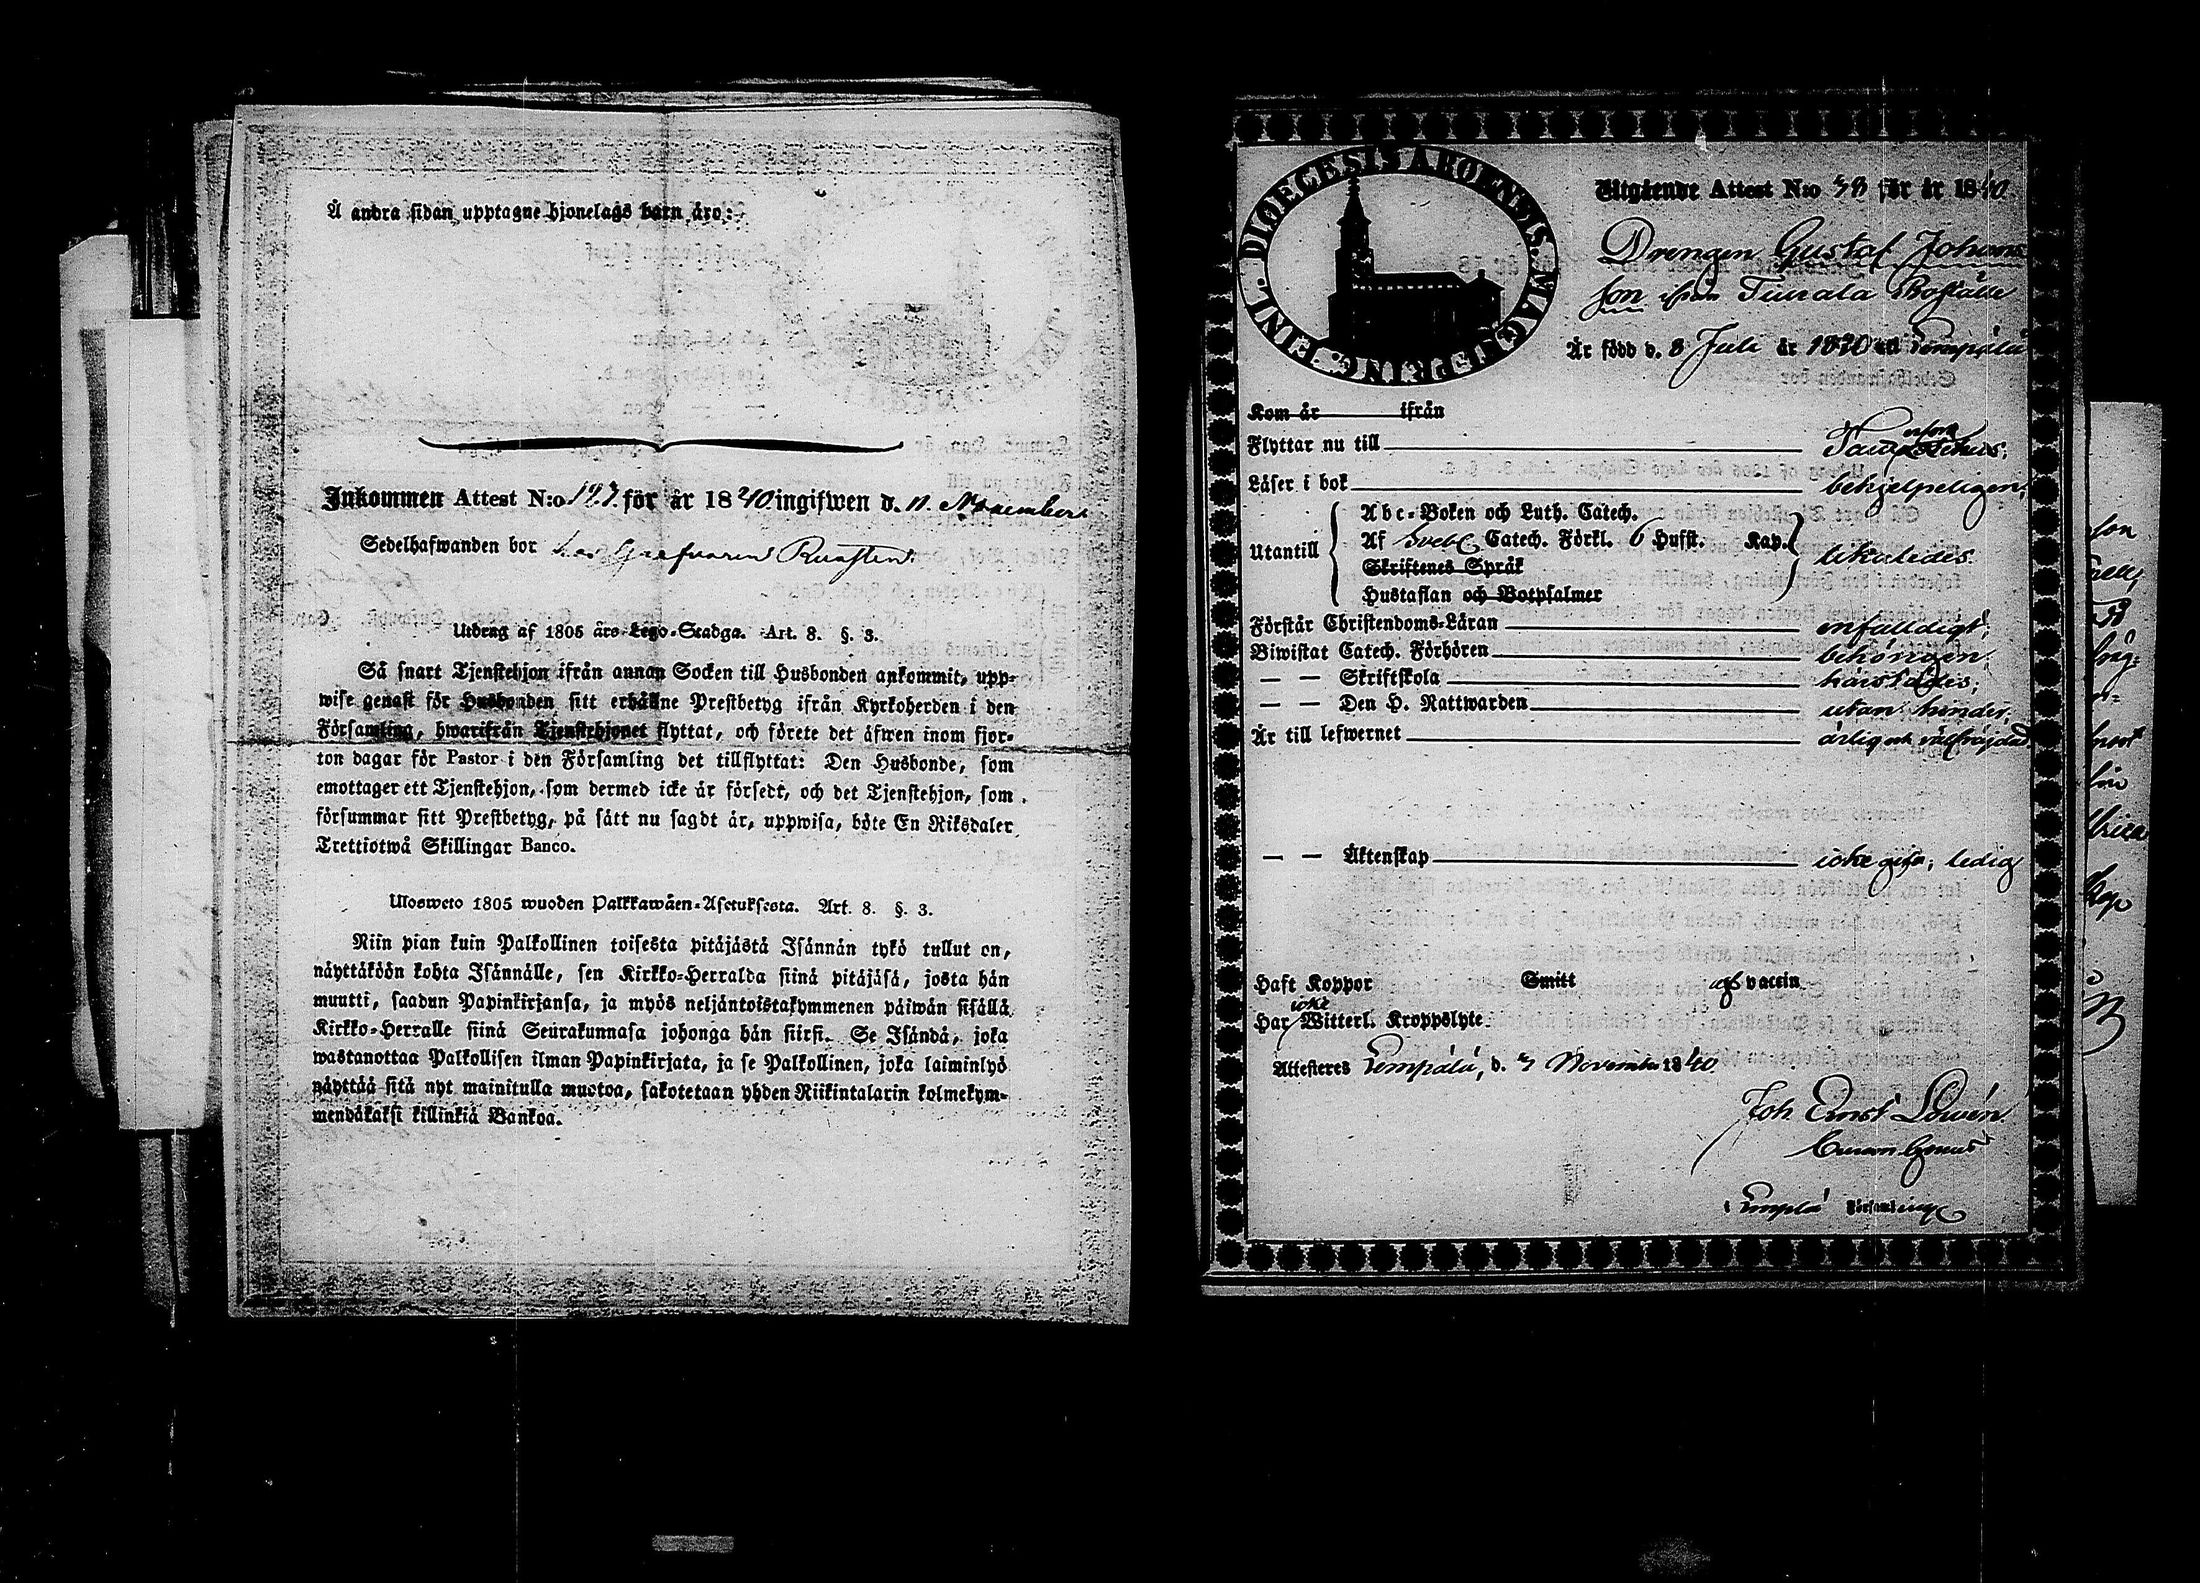 Å andra sidan upptagne hjonelags barn äro:
Inkommen Attest N:o 197. för år 1840 ingifwen d. 11. November
Sedelhafwanden bor
Utdrag af 1805 års Lego-Stadga. Art. 8. §. 3.
Så snart Tjenstehjon ifrån annan Socken till Husbonden ankommit, upp-
wise genast för Husbonden sitt erhållne Prestbetyg ifrån Kyrkoherden i den
Församling, hwarifrån Tjenstehjonet flyttat, och förete det äfwen inom fjor-
ton dagar för Pastor i den Församling det tillflyttat: Den Husbonde, som
emottager ett Tjenstehjon, som dermed icke är försedt, och det Tjenstehjon, som
försummar sitt Prestbetyg, på sätt nu sagdt är, uppwisa, böte En Riksdaler
Trettiotwå Skillingar Banco.
Ulosweto 1805 wuoden Palkkawäen-Asetuksesta. Art. 8. §. 3.
Niin pian kuin Palkollinen toisesta pitäjästä Isännän tykö tullut on,
näyttäköön kohta Isännälle, sen Kirkko-Herralda siinä pitäjäsä, josta hän
muutti, saadun Papinkirjansa, ja myös neljäntoistakymmenen päiwän sisällä
Kirkko-Herralle siinä Seurakunnasa johonga hän siirsi. Se Isändä, joka
wastanottaa Palkollisen ilman Papinkirjata, ja se Palkollinen, joka laiminlyö
näyttää sitä nyt mainitulla muotoa, sakotetaan yhden Riikintalarin kolmekym-
mendäkaksi killinkiä Bankoa.
DIOECESIS ABOENSIS. MAGN. PRINC. FINL.
Utgående Attest N:o 58 för år 1840
Drengen Gustaf Johans
son ifrån Boställe
Är född d. 8 Juli år 1820 uti Lempälä
Kom år ifrån
Flyttar nu till
Läser i bok behjelpeligen;
Abc-Boken och Luth. Catech.
Utantill Af Svebl. Catech. Förkl. 6 Hufst. Kap. likaledes.
Skriftenes Språk
Hustaflan och Botpsalmer
Förstår Christendoms-Läran enfalldigt;
Biwistat Catech. Förhören behörigen;
— — Skriftskola
— — Den H. Nattwarden utan hinder;
Är till lefwernet ärlig och välfräjdad
— — Äktenskap icke gifn; ledig
Haft Koppor Smitt af vaccin
Har icke Witterl. Kroppslyte
Attesteres Lempälä, d. 7 November 1840
Joh Ernst Löwén
i Lempälä Församling